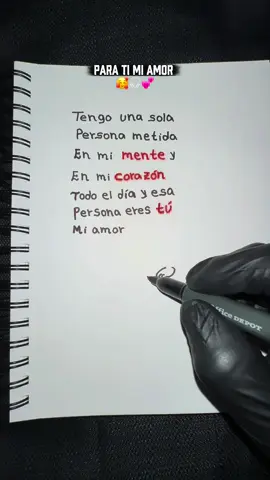 PARA TI MI AMOR
🥰💌💕
Tengo una sola
Persona metida
En mi mente y
En mi corazón
Todo el día y esa
Persona eres tú
Mi amor
Office DEPOT